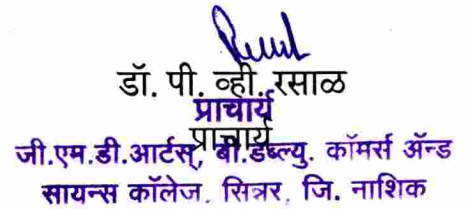 डॉ. पी. व्ही. रसाळ
प्राचार्य
प्राचार्य
जी.एम.डी.आर्टस्, बी.डब्ल्यु. कॉमर्स ॲन्ड
सायन्स कॉलेज. सिन्नर, जि. नाशिक